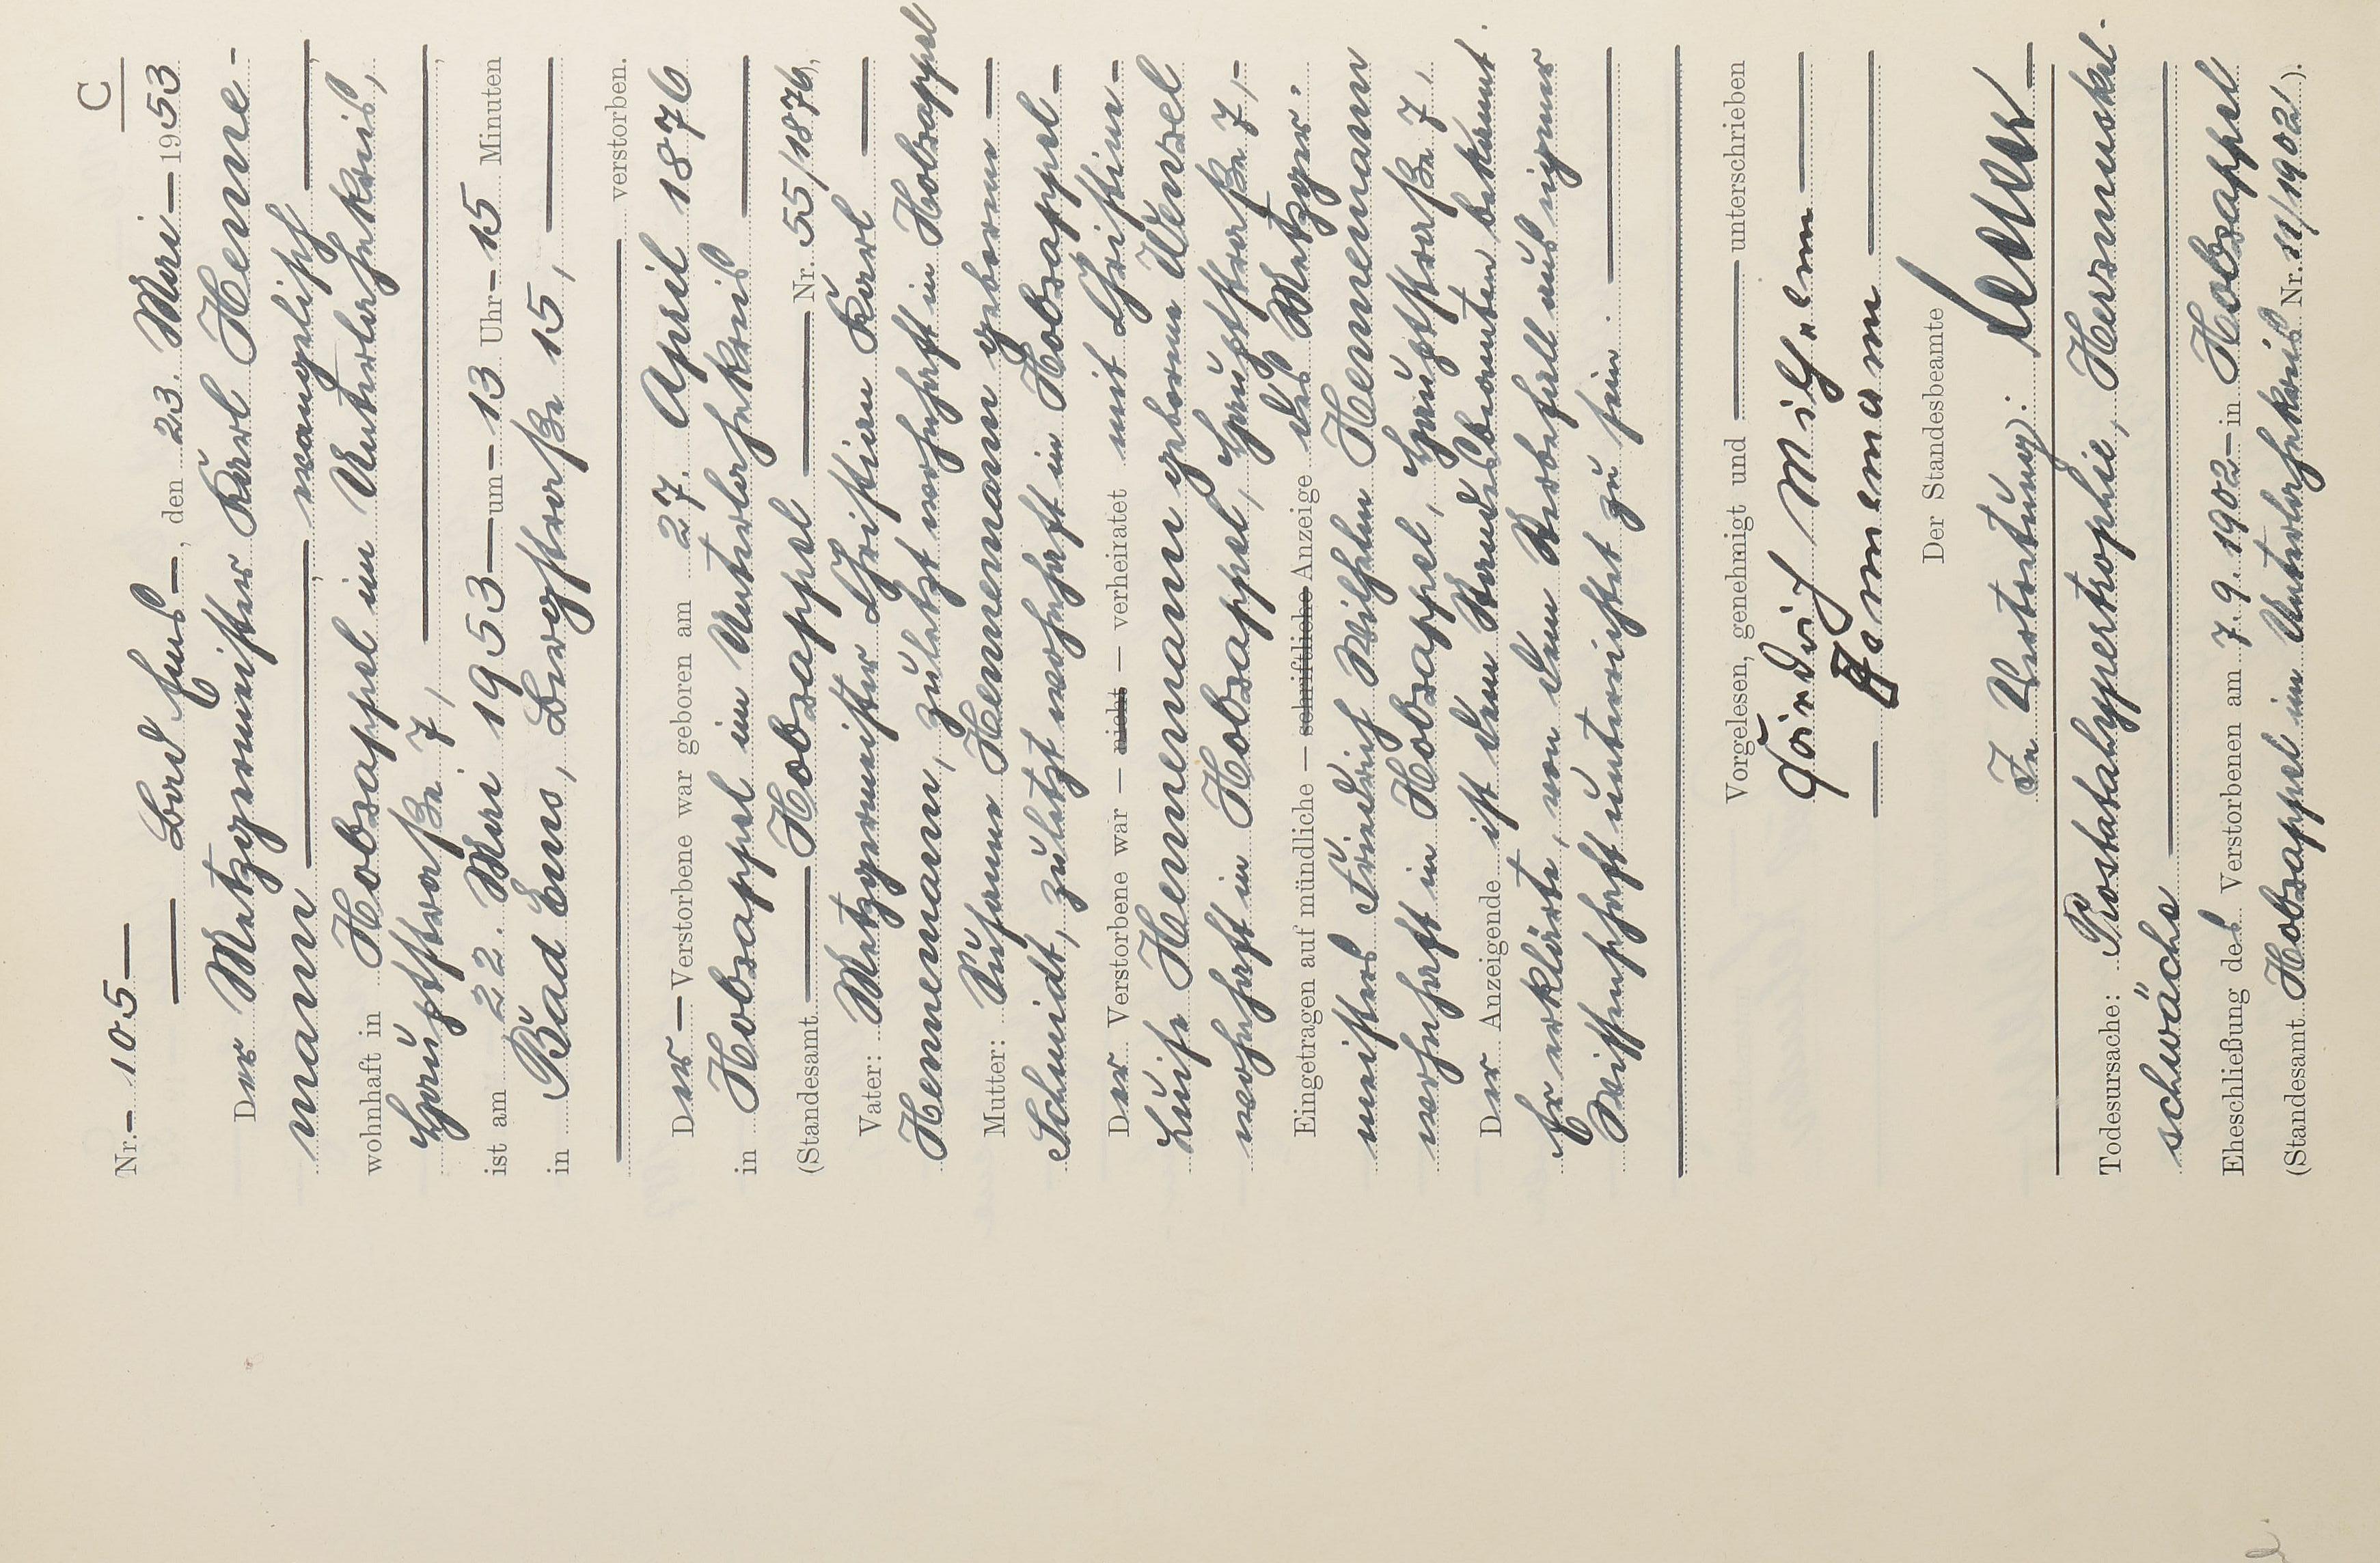 C
Nr. 105
Bad Ems, den 23. Mai 1953
Der Metzgermeister Karl Henne-
mann, evangelisch,
wohnhaft in Holzappel im Unterlahnkreis,
Hauptstraße 7,
ist am 22. Mai 1953 um 13 Uhr 15 Minuten
in Bad Ems, Bergstraße 15,
verstorben.
Der Verstorbene war geboren am 27. April 1876
in Holzappel im Unterlahnkreis
(Standesamt Holzappel Nr. 55/1876).
Vater: Metzgermeister Christian Karl
Hennemann, zuletzt wohnhaft in Holzappel
Mutter: Susanne Hennemann geborene
Schmidt, zuletzt wohnhaft in Holzappel
Der Verstorbene war — nicht — verheiratet mit Christine
Luise Hennemann geborene Wenzel
wohnhaft in Holzappel, Hauptstraße 7,
Eingetragen auf mündliche — schriftliche Anzeige des Metzger-
meisters Friedrich Wilhelm Hennemann
wohnhaft in Holzappel, Hauptstraße 7,
Der Anzeigende ist dem Standesbeamten bekannt.
Er erklärte, von dem Sterbefall aus eigner
Wissenschaft unterrichtet zu sein.
Vorgelesen, genehmigt und unterschrieben
Friedrich Wilhelm
Hennemann
Der Standesbeamte
In Vertretung:
Todesursache: Prostatahypertrophie, Herzmuskel-
schwäche
Eheschließung des Verstorbenen am 7.9.1902 in Holzappel
(Standesamt Holzappel im Unterlahnkreis Nr. 11/1902).